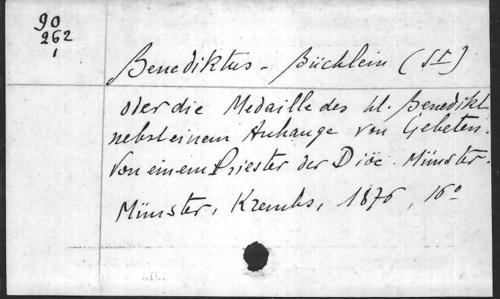 90
262
1
Benediktus-Büchlein (St)
oder die Medaille des hl. Benedikt
nebst einem Anhange von Gebeten.
Von einem Priester der Diöc. Münster.
Münster, Krembs, 1876, 16°